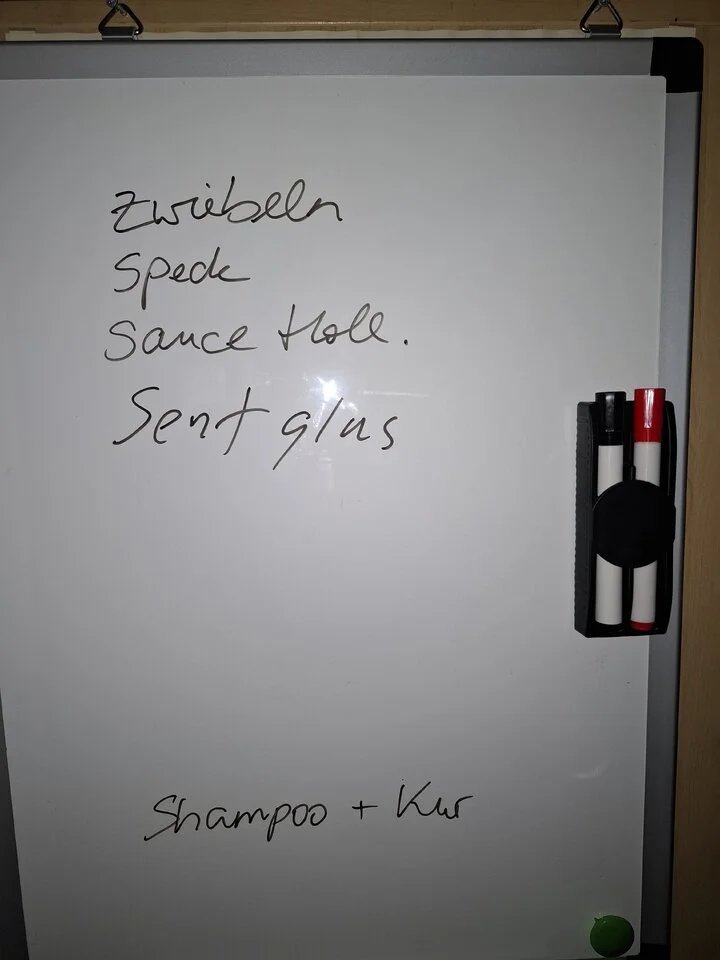 Zwiebeln
Speck
Sauce Holl.
Senf glas
Shampoo + Kur